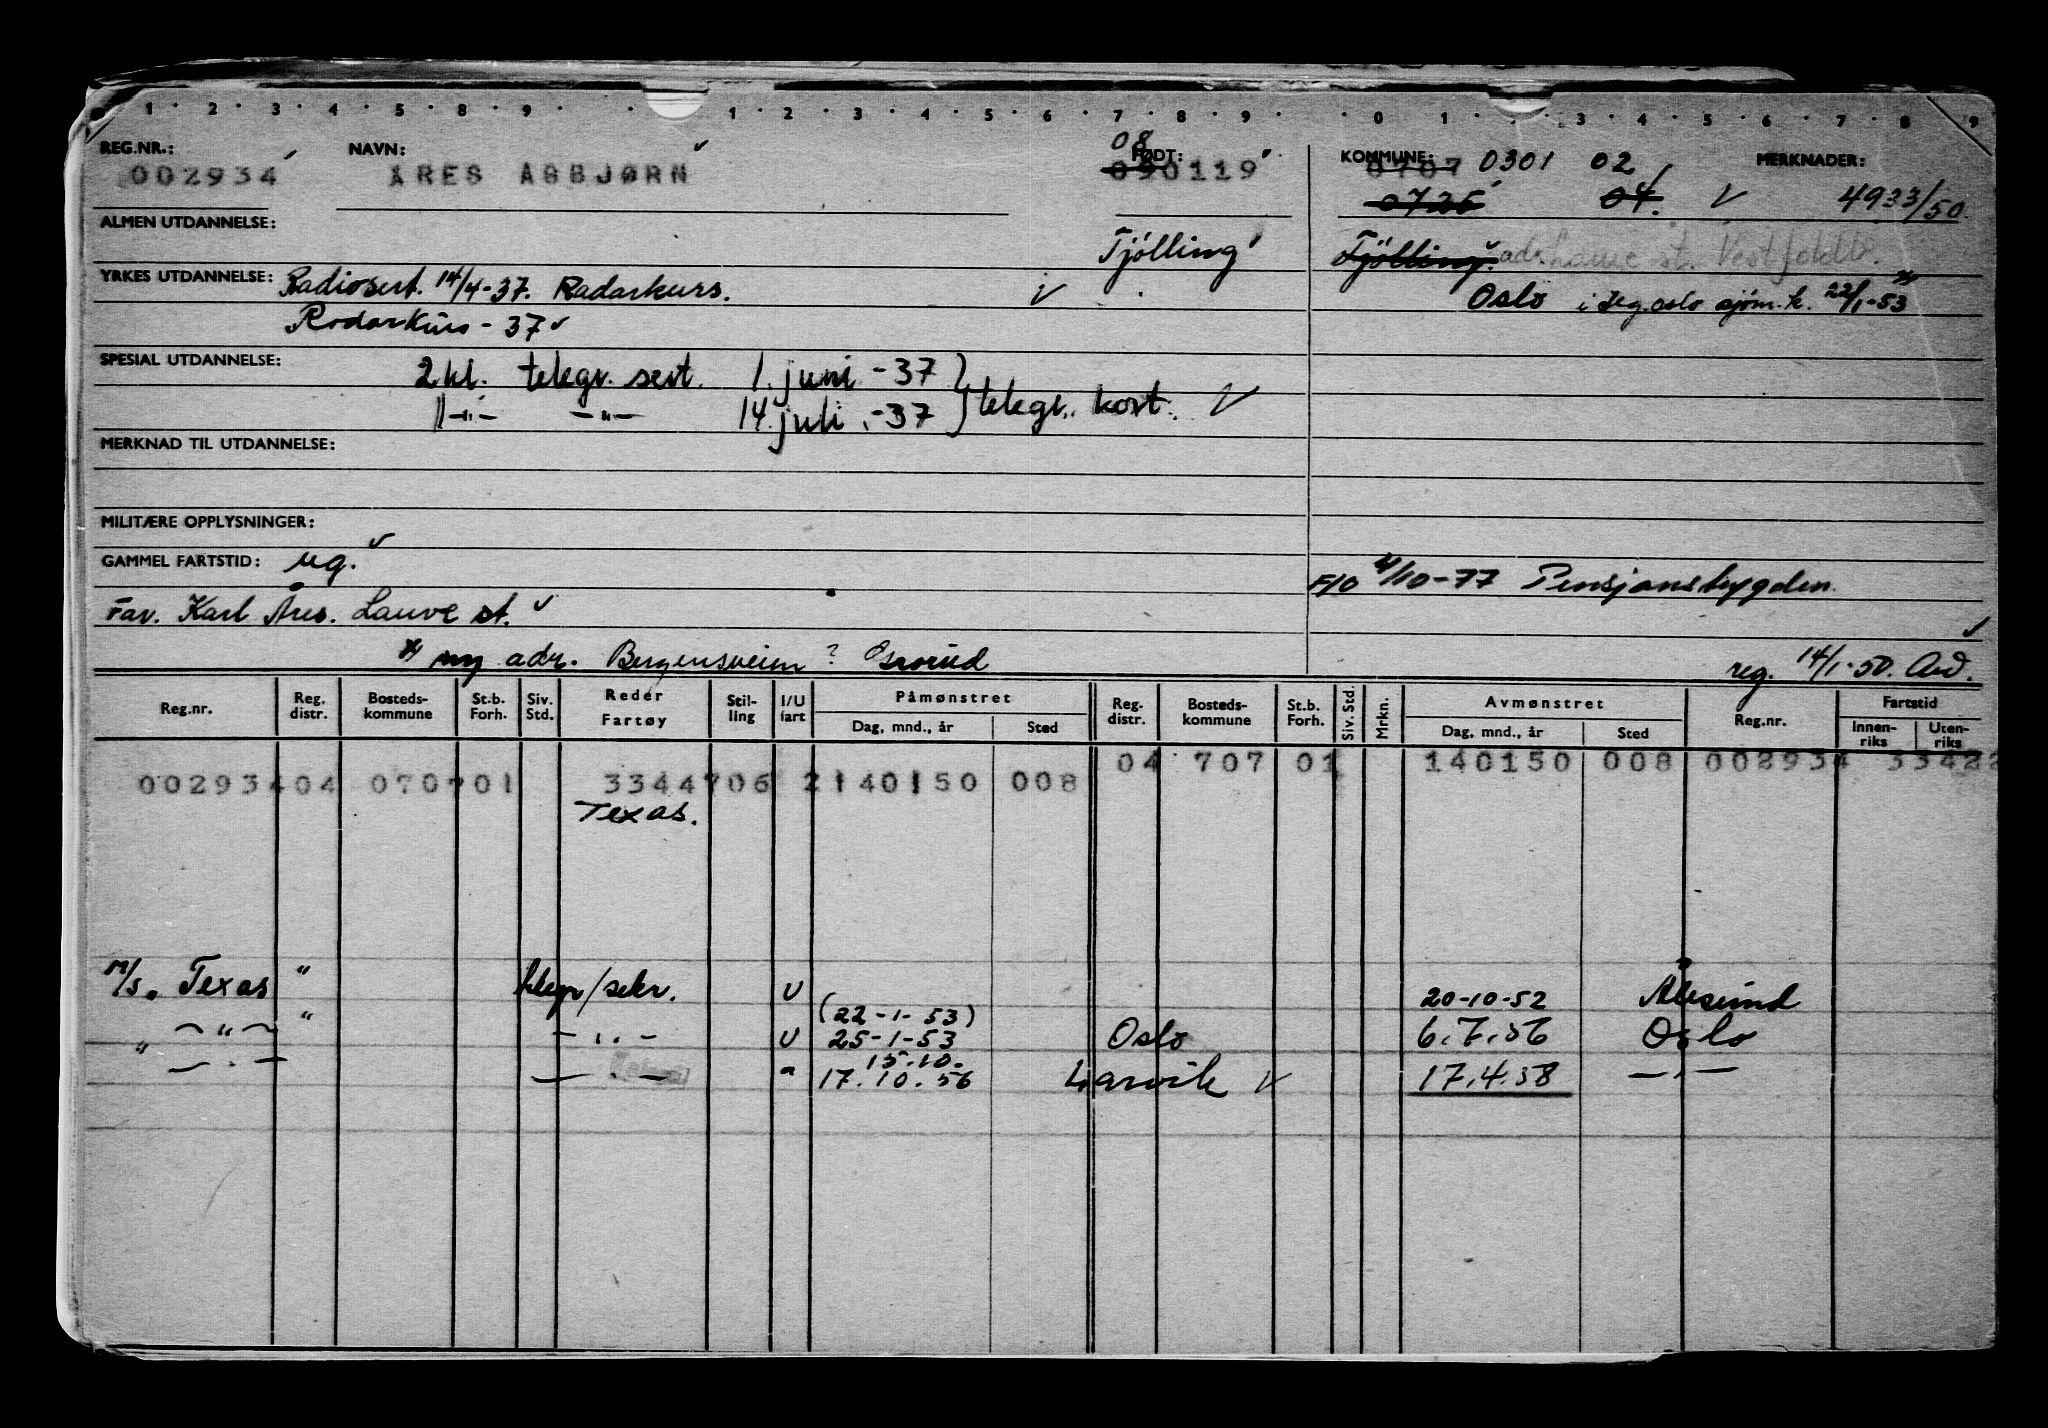 1 · 2 · 3 · 4 · 5 · 8 · 9 · · · 1 · 2 · 3 · 4 · 5 · 6 · 7 · 8 · 9 · 0 · 1 · · · 3 · 4 · 5 · 6 · 7 · 8 · 9
REG.NR.: NAVN: FØDT: 08 KOMMUNE: 0301 02 MERKNADER:
002934 ÅRES ASBJØRN 090119 0707
0726 04. 4933/50.
ALMEN UTDANNELSE:
Tjølling Tjølling. adr. Lauve st. Vestfoldb.
YRKES UTDANNELSE: Radiosert. 14/4-37. Radarkurs. Oslo i flg. oslo sjøm.k. 22/1-53
Radarkurs - 37
SPESIAL UTDANNELSE: 2 kl. telegr. sert. 1. juni -37
" -"- -"- 14. juli -37 telegr. kort.
MERKNAD TIL UTDANNELSE:
MILITÆRE OPPLYSNINGER:
GAMMEL FARTSTID: ug.
F/O 4/10-77 Pensjonstrygden.
Fav. Karl Åres. Lauve st.
* ny adr. Bergensveien ? Grorud
reg. 14/1-50.
Reg.nr. Reg. distr. Bosteds-kommune St.b. Forh. Siv. Std. Reder Fartøy Stil-ling I/U fart Påmønstret Dag, mnd., år Sted Reg. distr. Bosteds-kommune St.b. Forh. Siv. Std. Mrkn. Avmønstret Dag, mnd., år Sted Reg.nr. Fartstid Innen-riks Uten-riks
00293404 070701 3344706 2140150 008 04 707 01 140150 008 002934 33422
Texas.
M/S. Texas " telegr/sekr. U 20-10-52 Ålesund
(22-1-53)
-"- " -"- U 25-1-53 Oslo 6.7.56 Oslo
15.10.
" -"- -"- " 17.10.56 Larvik 17.4.58 -"-